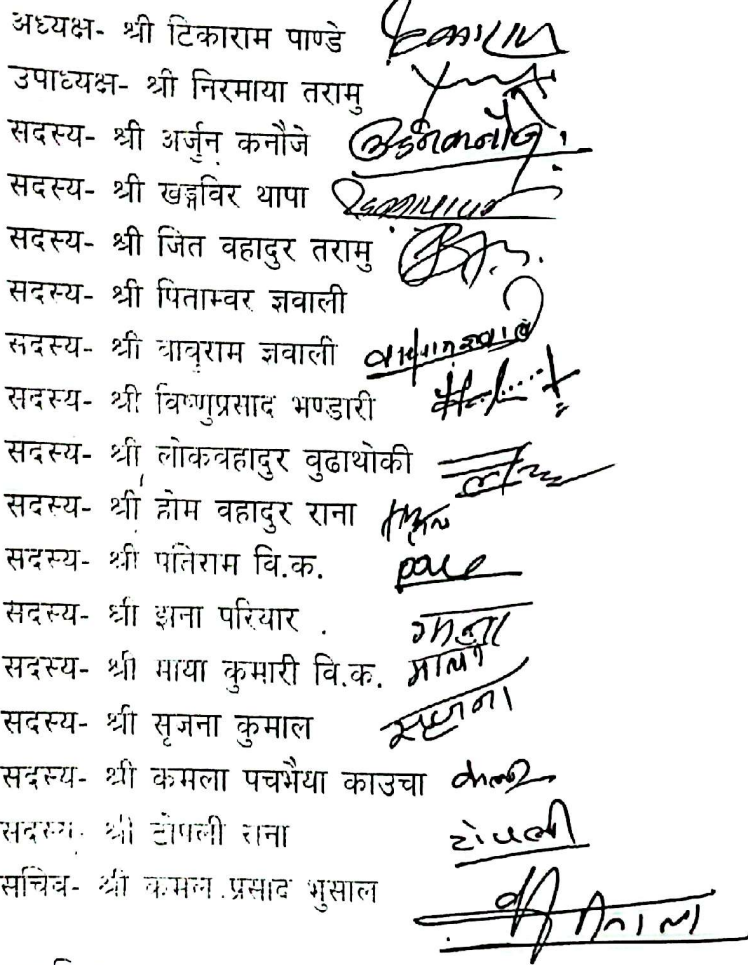 अध्यक्ष- श्री टिकाराम पाण्डे
उपाध्यक्ष- श्री निरमाया तरामु
सदस्य- श्री अर्जुन कनौजे
सदस्य- श्री खड्गविर थापा
सदस्य- श्री जित वहादुर तरामु
सदस्य- श्री पिताम्वर ज्ञवाली
सदस्य- श्री वावुराम ज्ञवाली
सदस्य- श्री विष्णुप्रसाद भण्डारी
सदस्य- श्री लोकवहादुर वुढाथोकी
सदस्य- श्री होम वहादुर राना
सदस्य- श्री पतिराम वि.क.
सदस्य- श्री झना परियार
सदस्य- श्री माया कुमारी वि.क. माया
सदस्य- श्री सृजना कुमाल सृजना
सदस्य- श्री कमला पचभैया काउचा
सदस्य- श्री टोपली राना टोपली
सचिव- श्री कमल प्रसाद भुसाल